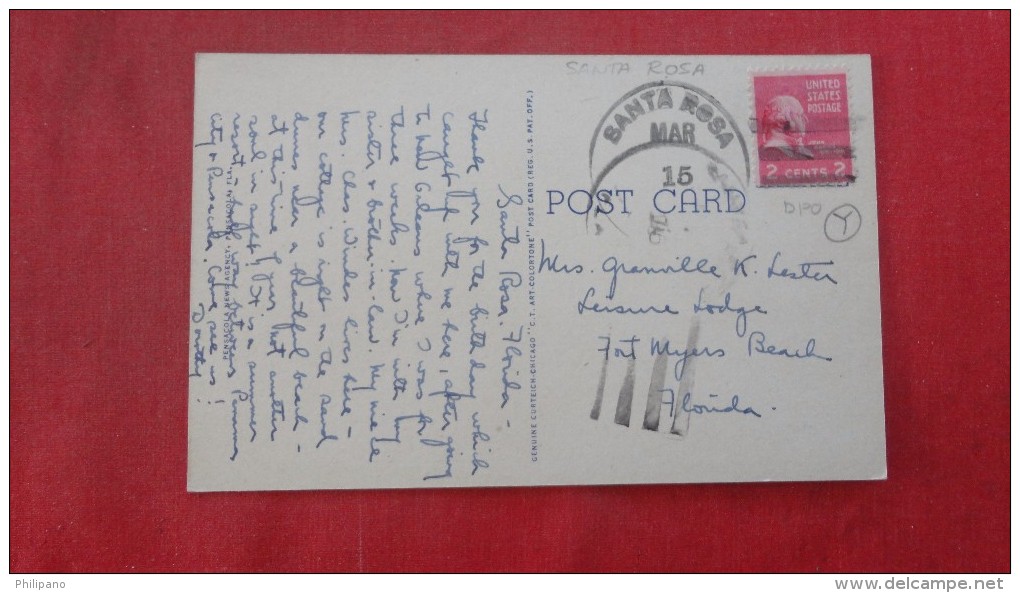 SANTA ROSA
SANTA ROSA
MAR
15
UNITED
STATES
POSTAGE
JOHN
2 CENTS 2
DPO
Y
POST CARD
Mrs. Granville K. Lester
Leisure Lodge
Fort Myers Beach
Florida.
GENUINE CURTEICH-CHICAGO "C.T. ART-COLORTONE" POST CARD (REG. U.S. PAT. OFF.)
Santa Rosa, Florida -
Thank you for the birthday which
caught up with me here, after going
to New Orleans where I was for
three weeks. Now I'm with my
sister & brother-in-law. My niece
Mrs. Chas. lives here -
our cottage is right on the sand
dunes near a beautiful beach -
at this time of year not another
soul in sight! It is a summer
resort, between Panama
city & Pensacola. Come see us!
Dorothy
PENSACOLA NEWS AGENCY, PENSACOLA, FLA.
Philipano
www.delcampe.net